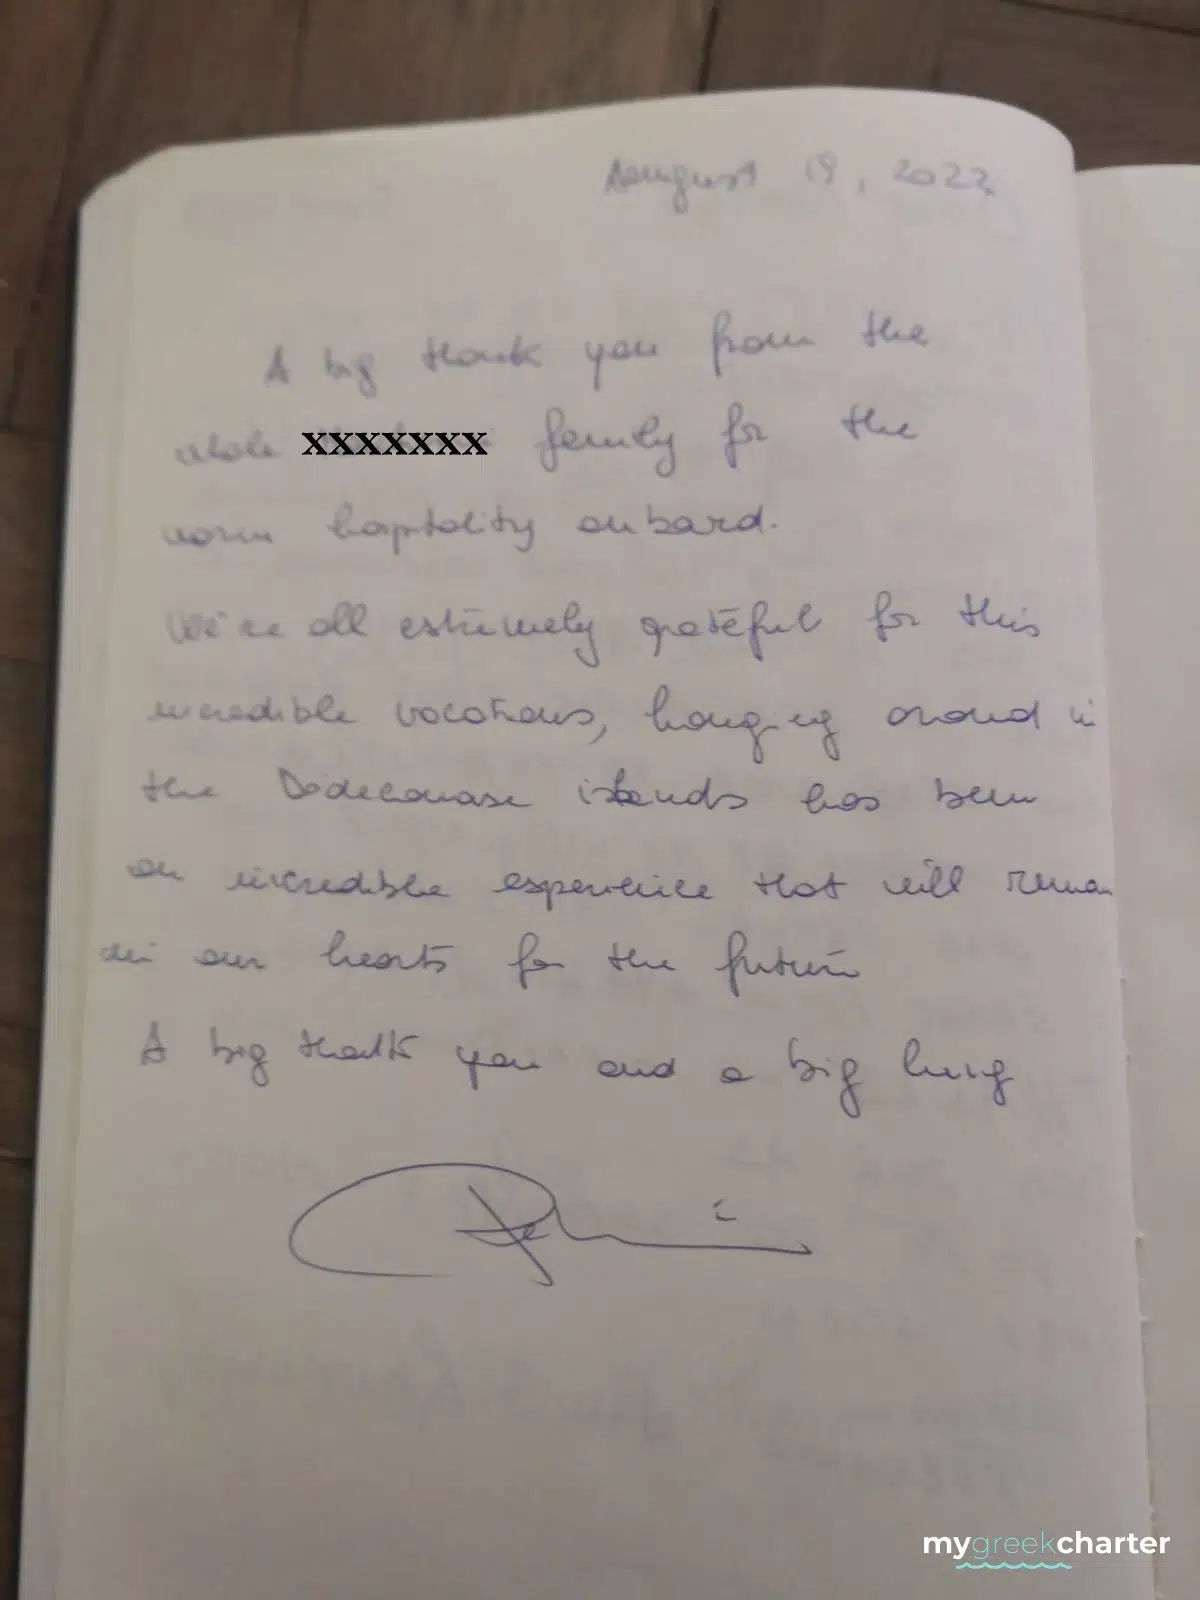 August 19, 2022
A big thank you from the
whole xxxxxxx family for the
warm hospitality onboard.
We're all extremely grateful for this
incredible vacations, hanging around in
the Dodecanese islands has been
an incredible experience that will remain
in our hearts for the future
A big thank you and a big hug
mygreekcharter